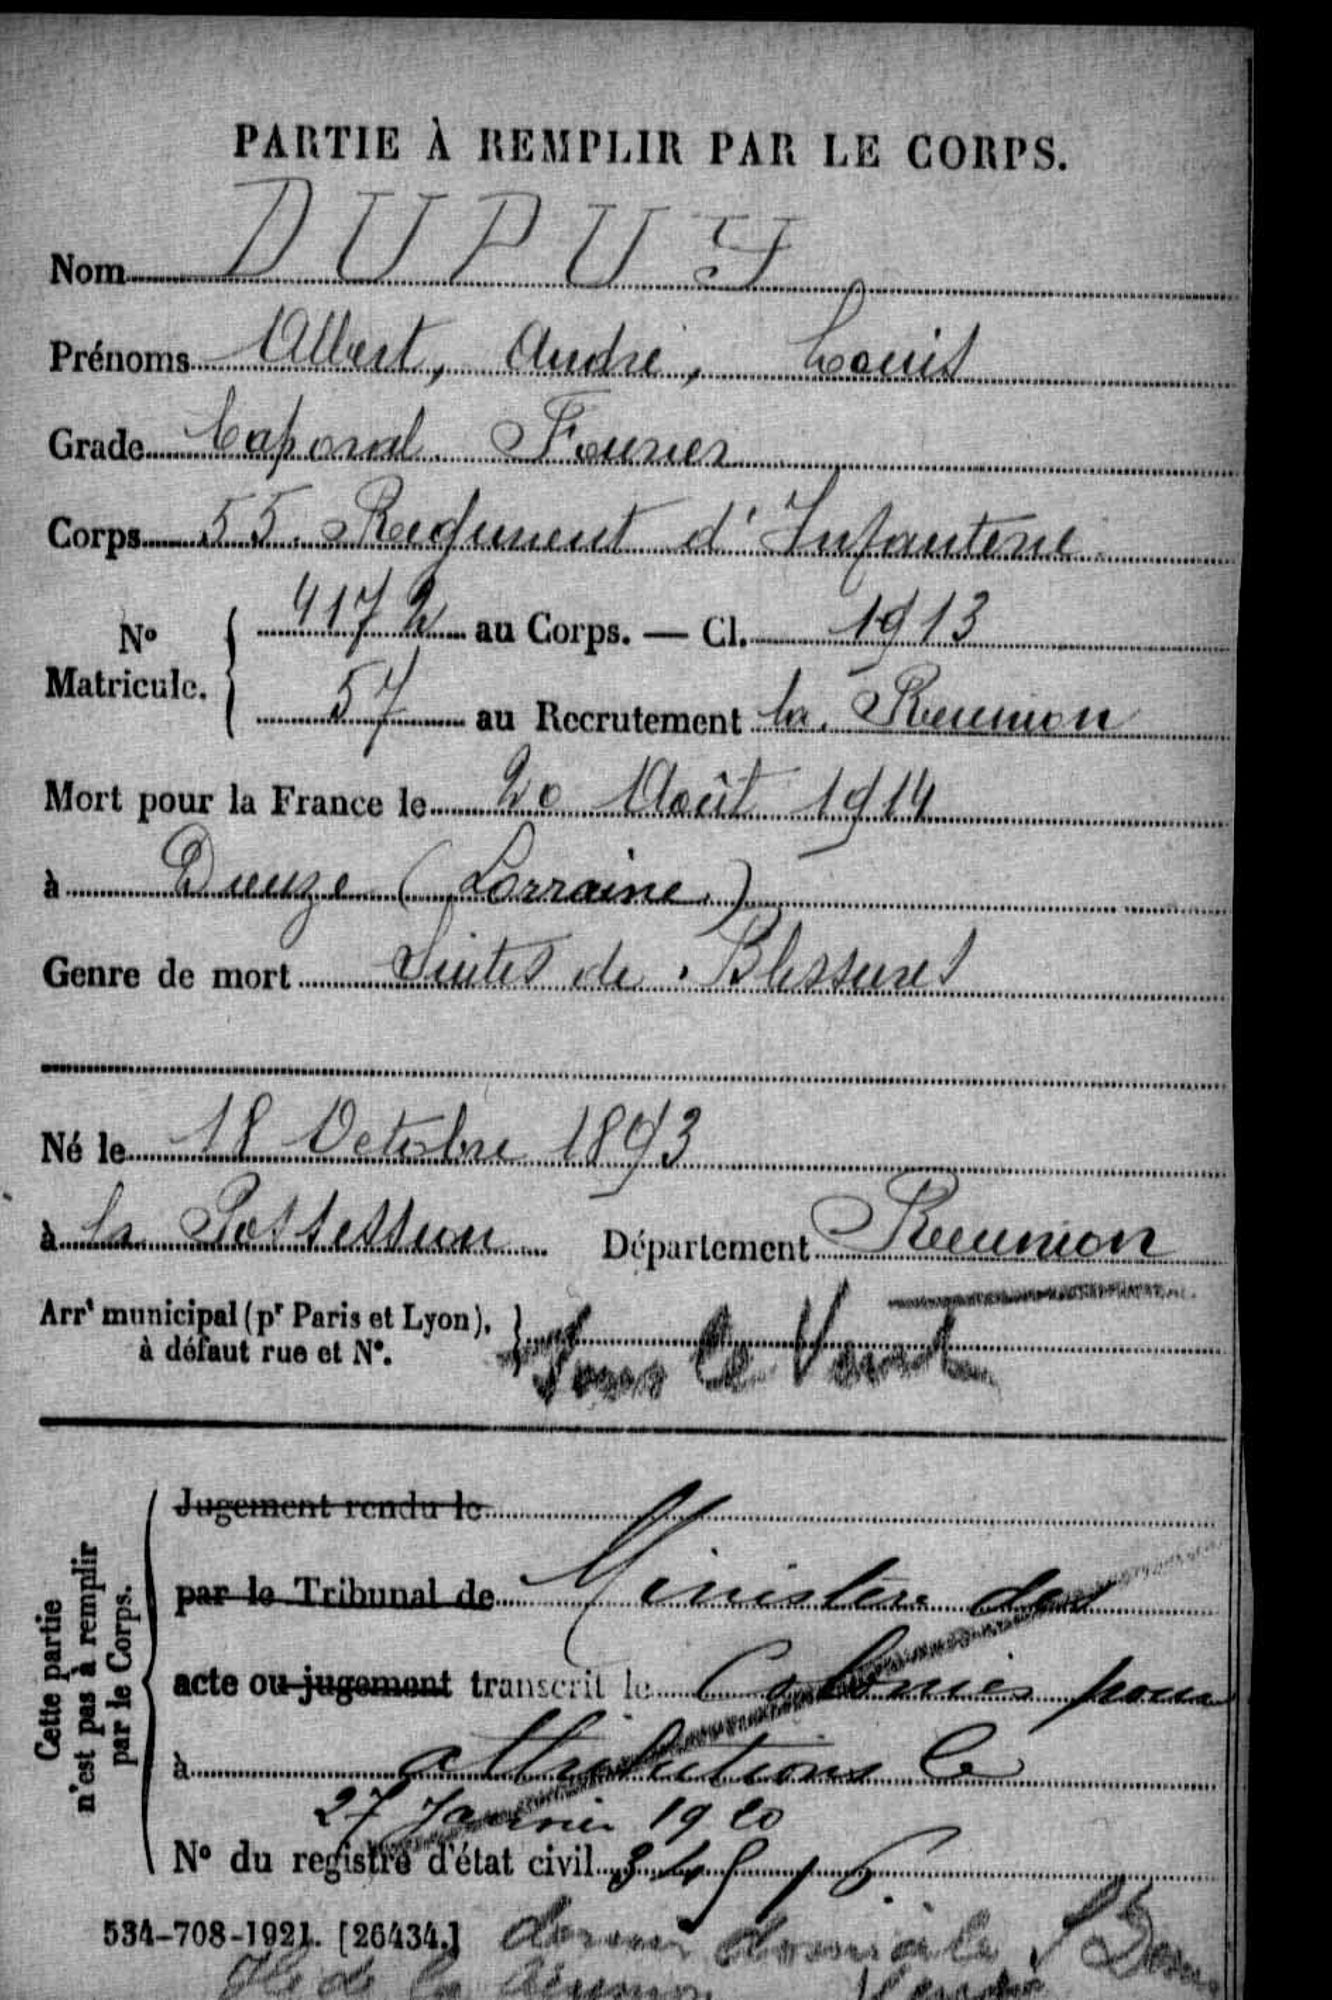 PARTIE À REMPLIR PAR LE CORPS.
Nom DUPUY
Prénoms Albert, André, Louis
Grade Caporal Fourier
Corps 55. Regiment d'Infanterie
No Matricule. 4172 au Corps. — Cl. 1913
57 au Recrutement la Reunion
Mort pour la France le 20 Août 1914
à Dieuze (Lorraine)
Genre de mort Suites de Blessures
Né le 18 Octobre 1893
à la Possession Département Reunion
Arrt municipal (pr Paris et Lyon), à défaut rue et No. Sous le Vent
Cette partie n'est pas à remplir par le Corps.
Jugement rendu le
par le Tribunal de Ministère des
acte ou jugement transcrit le Colonies pour
à attributions le
27 Janvier 1920
No du registre d'état civil
534-708-1921. [26434.] dernier domicile St Denis
Ile de la Réunion